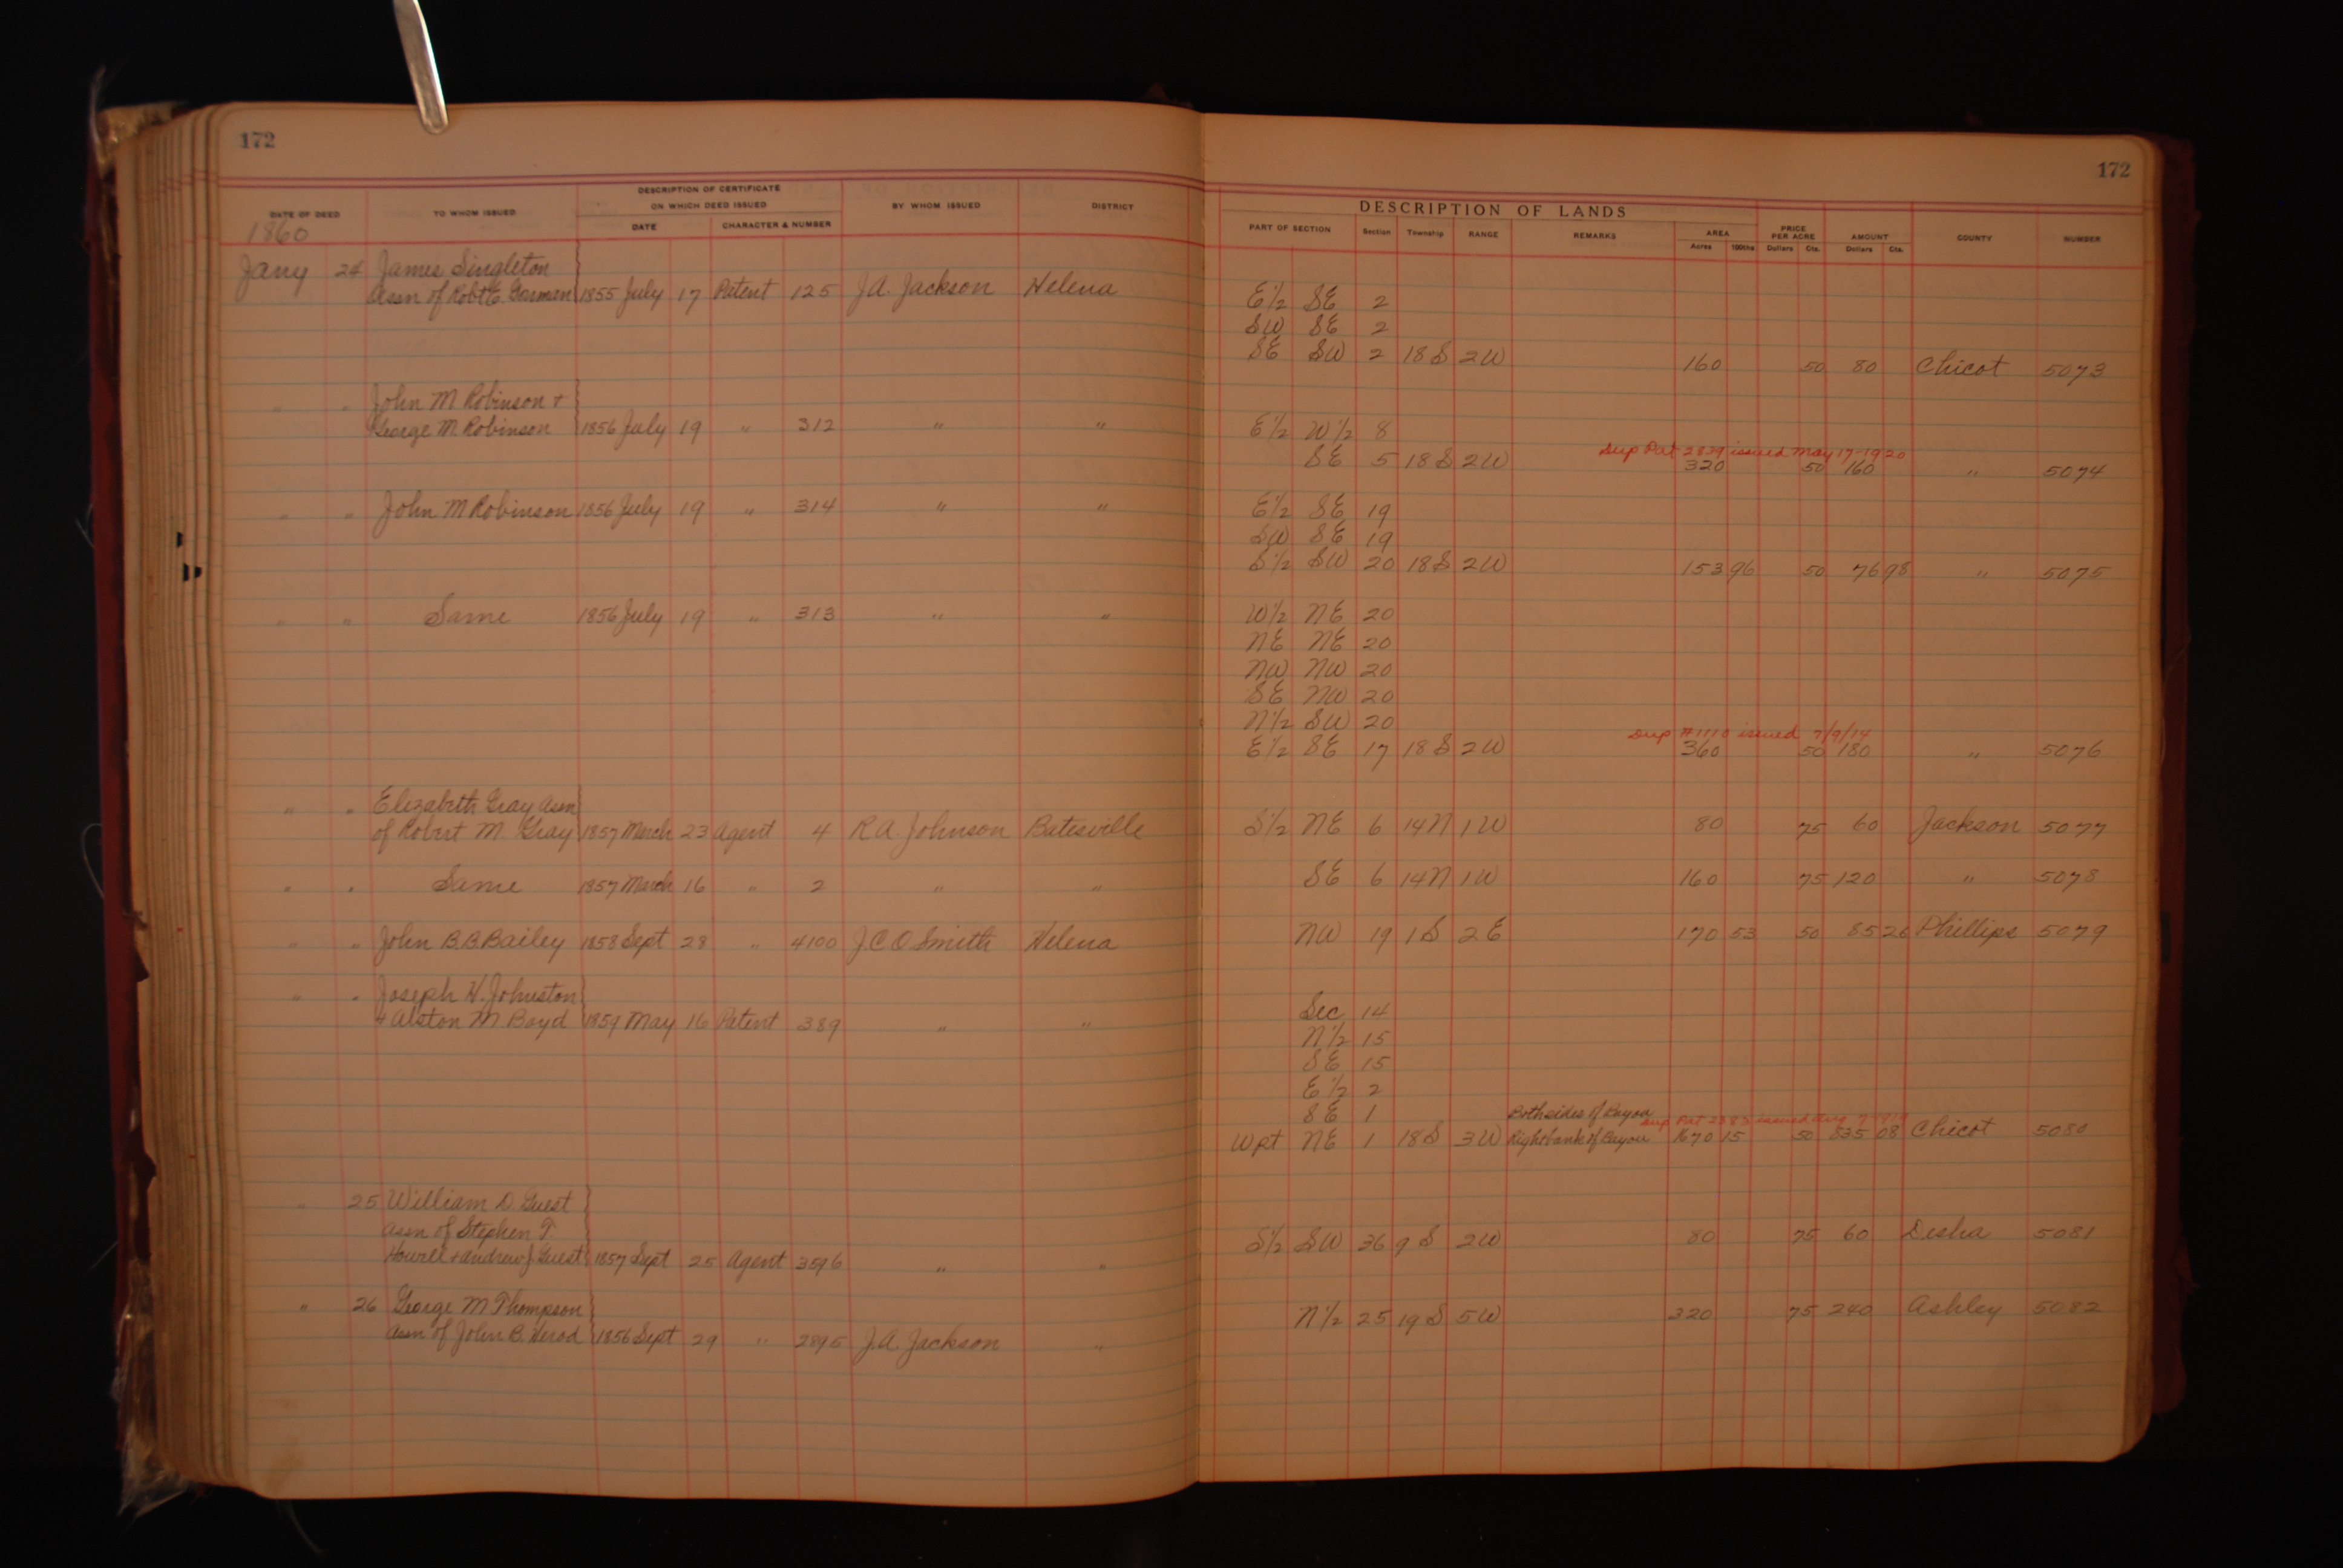 172
172
DATE OF DEED TO WHOM ISSUED DESCRIPTION OF CERTIFICATE ON WHICH DEED ISSUED DATE CHARACTER & NUMBER BY WHOM ISSUED DISTRICT
DESCRIPTION OF LANDS
PART OF SECTION Section Township RANGE REMARKS AREA Acres 100ths PRICE PER ACRE Dollars Cts. AMOUNT Dollars Cts. COUNTY NUMBER
1860
Jany 24 James Singleton
Assn of Robt E Gosman 1855 July 17 Patent 125 J.A. Jackson Helena E½ SE 2
SW SE 2
SE SW 2 18S 2W 160 50 80 Chicot 5073
" " John M Robinson +
George M. Robinson 1856 July 19 " 312 " " E½ W½ 8
Dup Pat 2839 issued May 17-1920
SE 5 18S 2W 320 50 160 " 5074
" " John M Robinson 1856 July 19 " 314 " " E½ SE 19
SW SE 19
S½ SW 20 18S 2W 153 96 50 76 98 " 5075
" " Same 1856 July 19 " 313 " " W½ NE 20
NE NE 20
NW NW 20
SE NW 20
N½ SW 20
Dup #1110 issued 7/9/14
E½ SE 17 18S 2W 360 50 180 " 5076
" " Elizabeth Gray Assn
of Robert M. Gray 1857 March 23 Agent 4 R.A. Johnson Batesville S½ NE 6 14N 1W 80 75 60 Jackson 5077
" " Same 1857 March 16 " 2 " " SE 6 14N 1W 160 75 120 " 5078
" " John B.B. Bailey 1858 Sept 28 " 4100 J.C.O. Smith Helena NW 19 1S 2E 170 53 50 85 26 Phillips 5079
" " Joseph H. Johnston
+ Alston M Boyd 1859 May 16 Patent 389 " " Sec 14
N½ 15
SE 15
E½ 2
SE 1 Both sides of Bayou
Dup Pat issued Aug
Wpt NE 1 18S 3W Right bank of Bayou 1670 15 50 835 08 Chicot 5080
" 25 William D. Guest
Assn of Stephen T.
Howell + Andrew J. Guest 1857 Sept 25 Agent 3596 " " S½ SW 36 9S 2W 80 75 60 Desha 5081
" 26 George M Thompson
Assn of John B. Herod 1856 Sept 29 " 2895 J.A. Jackson " N½ 25 19S 5W 320 75 240 Ashley 5082